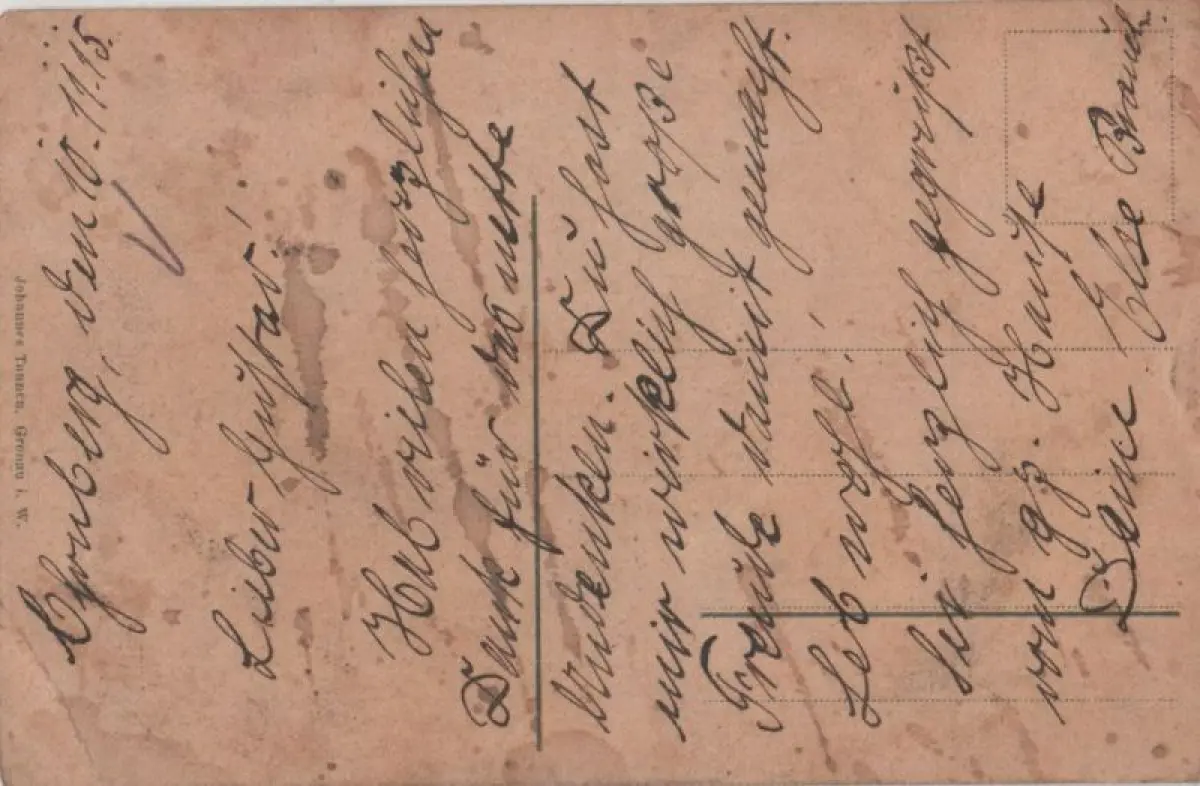 den 10.11.15.
Lieber Gustav!
Hab vielen herzlichen
Dank für das nette
Andenken. Du hast
mir wirklich große
Freude damit gemacht.
Leb wohl!
Sei herzlich gegrüßt
vom gz. Hause
Deine Else Brandt.
Johannes Tannen, Gronau i. W.